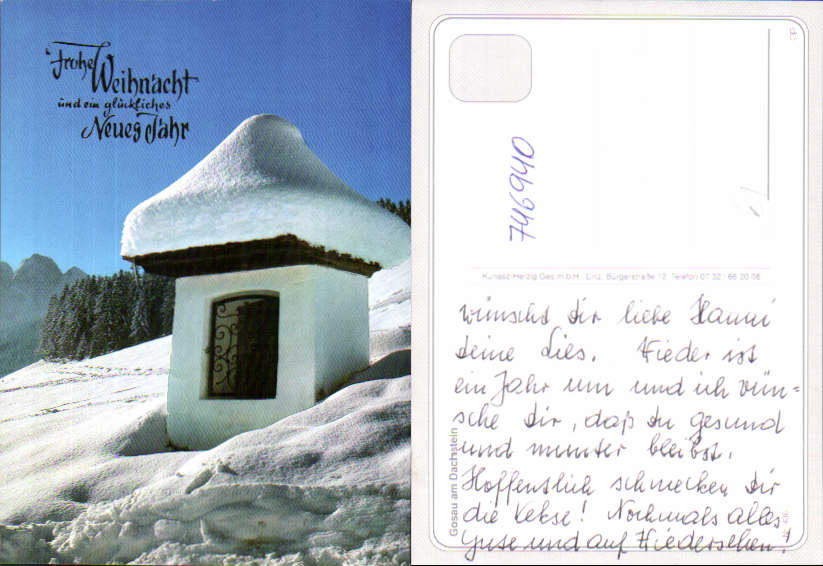 Frohe
Weihnacht
und ein glückliches
Neues Jahr
746940
Kunasz-Herzig Ges.m.b.H., Linz, Bürgerstraße 12, Telefon 07 32 / 66 20 06
Gosau am Dachstein
wünscht dir liebe Hanni
deine Lies. Wieder ist
ein Jahr um und ich wün=
sche dir, daß du gesund
und munter bleibst.
Hoffentlich schmecken dir
die Kekse! Nochmals alles
Gute und auf Wiedersehen!